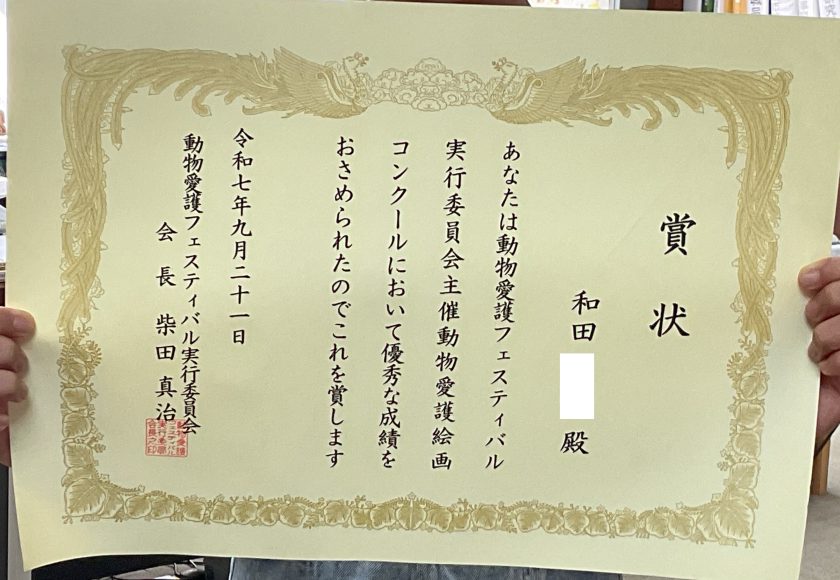 賞状
和田
殿
あなたは動物愛護フェスティバル
実行委員会主催動物愛護絵画
コンクールにおいて優秀な成績を
おさめられたのでこれを賞します
令和七年九月二十一日
動物愛護フェスティバル実行委員会
会長 柴田真治
動物愛護
フェスティバル
実行委員会
会長之印